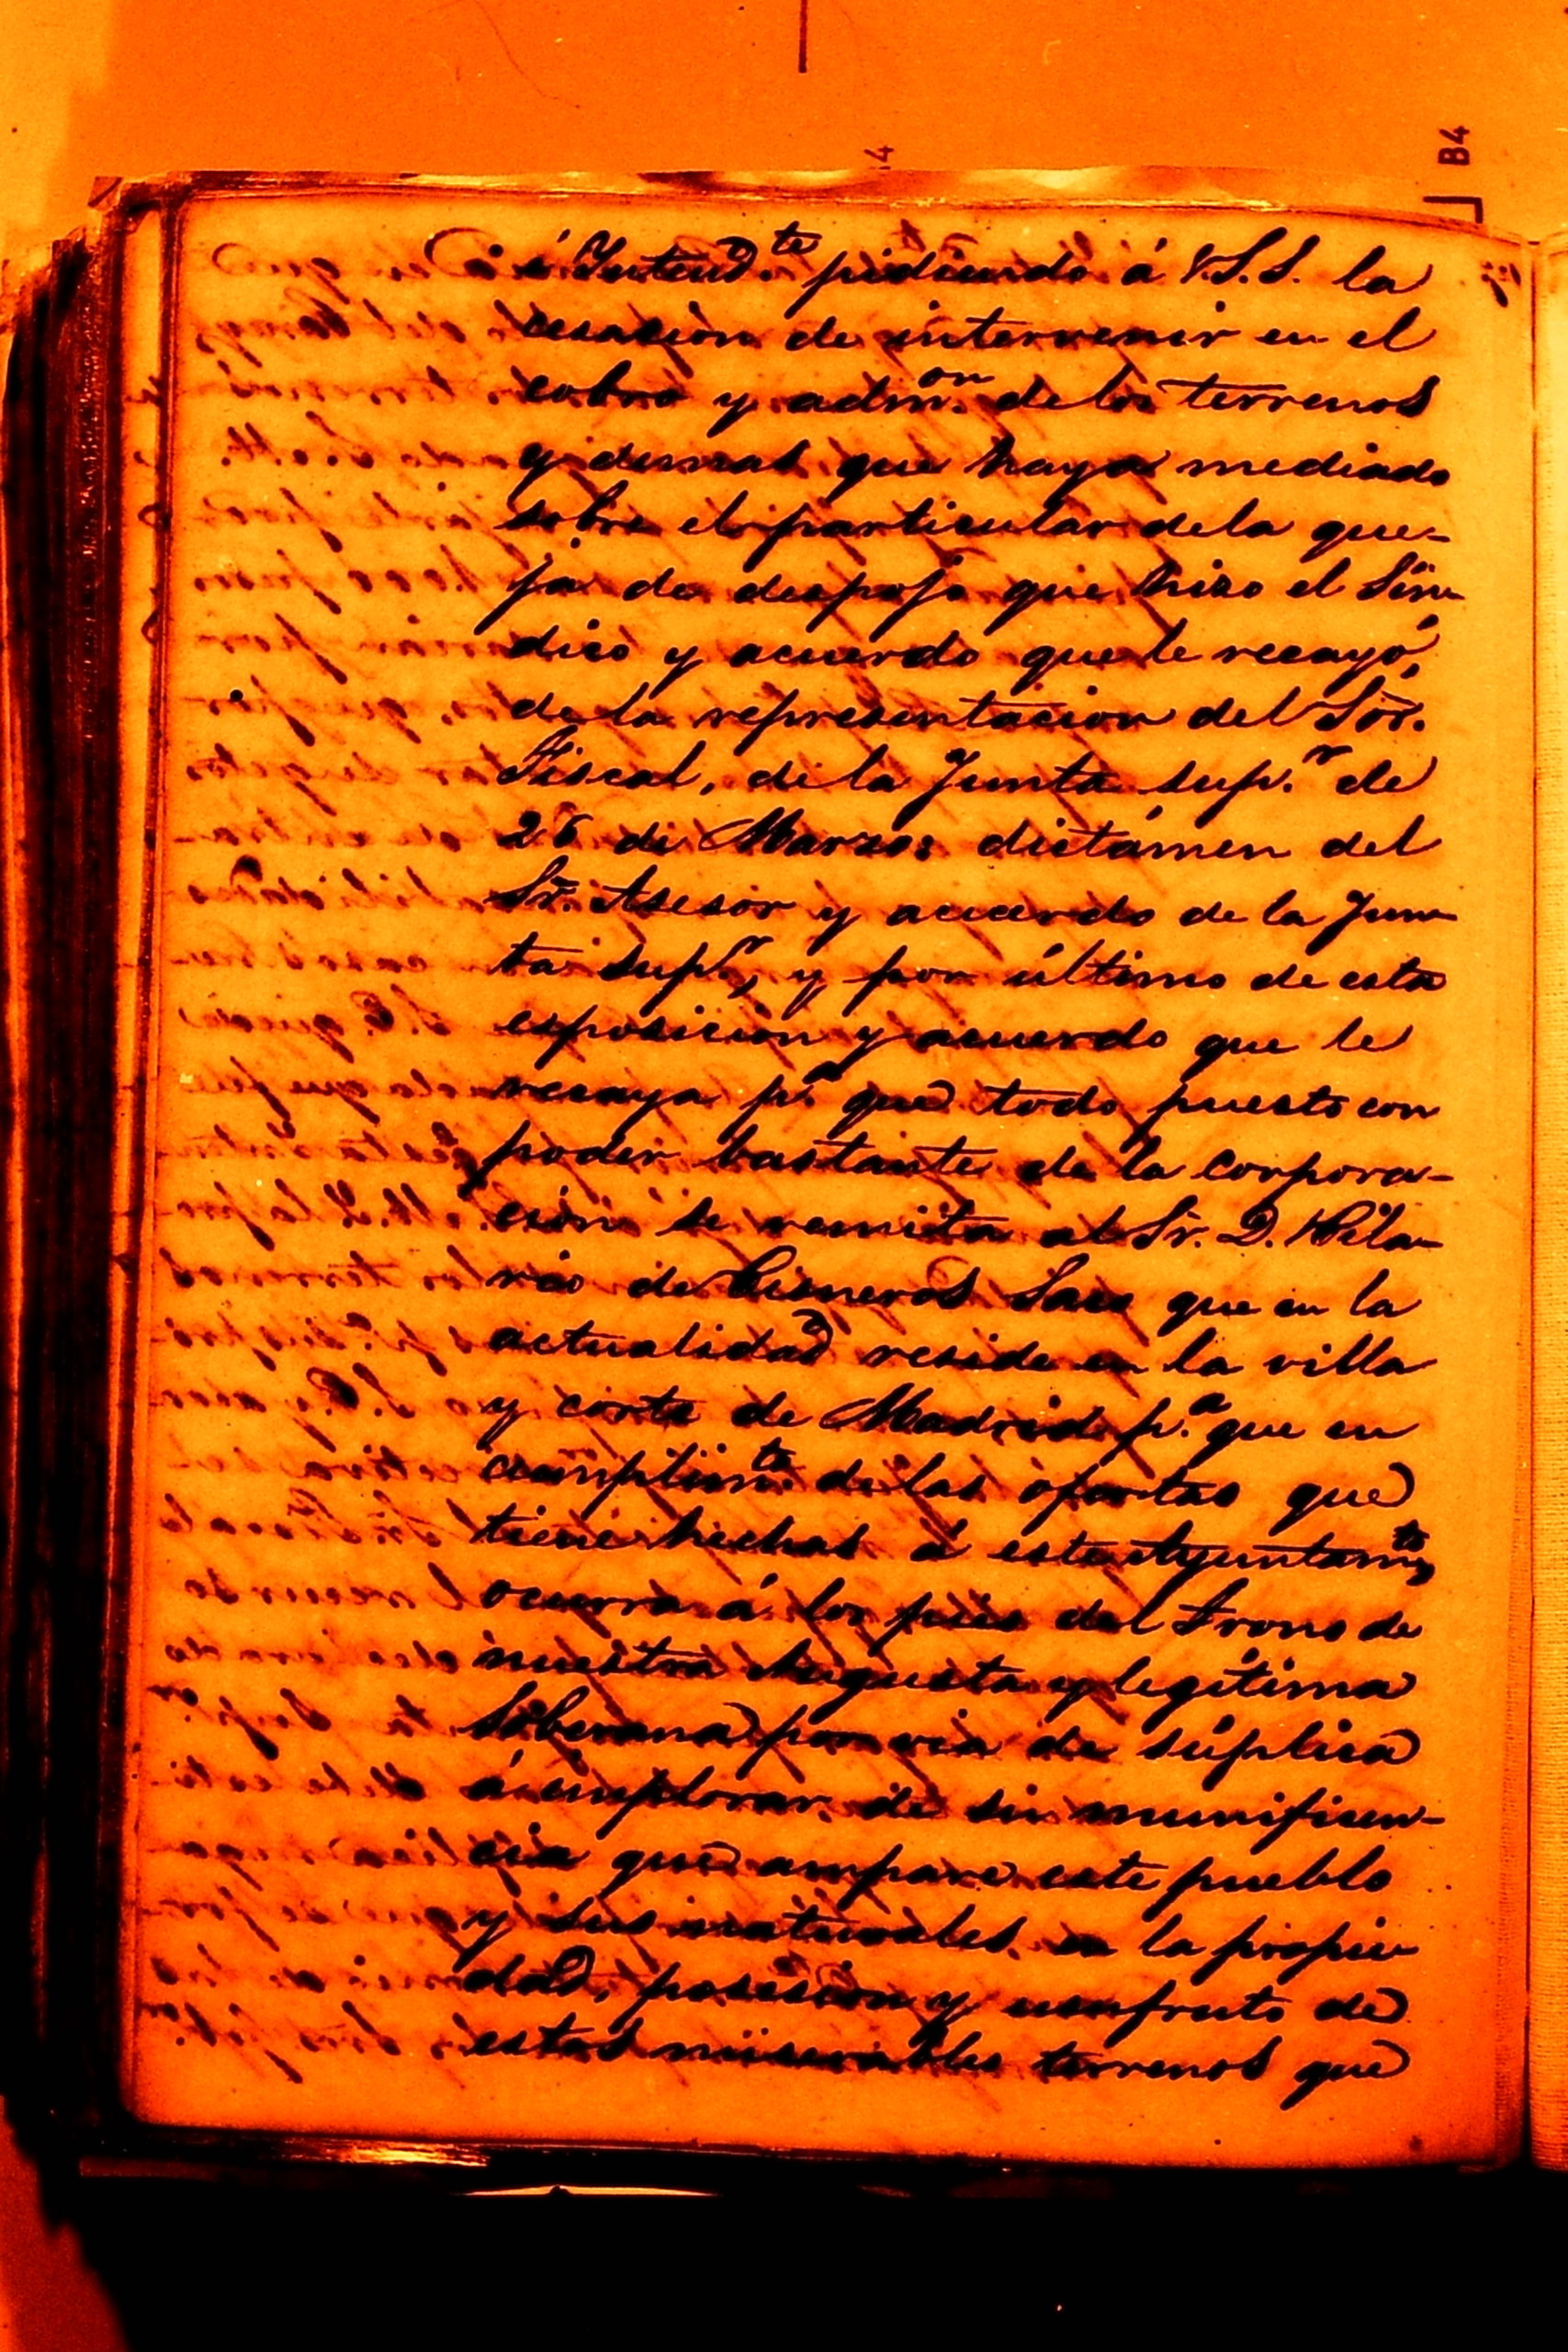 é Yntend.te pidiendo á V.S.S. la
cesacion de intervenir en el
cobro y admon. de los terrenos
y demas que haya mediado
sobre el particular de la que-
ja de despojo que hizo el Sin-
dico y acuerdo que le recayó,
de la representacion del Sor.
Fiscal, de la Junta sup.r de
26 de Marzo: dictámen del
Sr. Asesor y acuerdo de la Jun-
ta sup.r, y por último de esta
esposicion y acuerdo que le
recaya p.a que todo puesto con
poder bastante de la corpora-
cion se remita al Sr. D. Hila-
rio de Cisneros Saco que en la
actualidad reside en la villa
y corte de Madrid p.a que en
cumplim.to de las ofertas que
tiene hechas á este Ayuntam.to,
ocurra á los piés del trono de
nuestra Augusta y legítima
Soberana por via de súplica
á implorar de su munificen-
cia que ampare este pueblo
y sus naturales en la propie-
dad, posesion y usufruto de
estos miserables terrenos que
B4